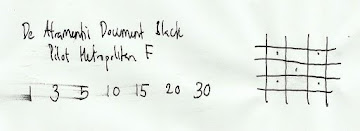 De Atramentis Document Black
Pilot Metropolitan F
1 3 5 10 15 20 30